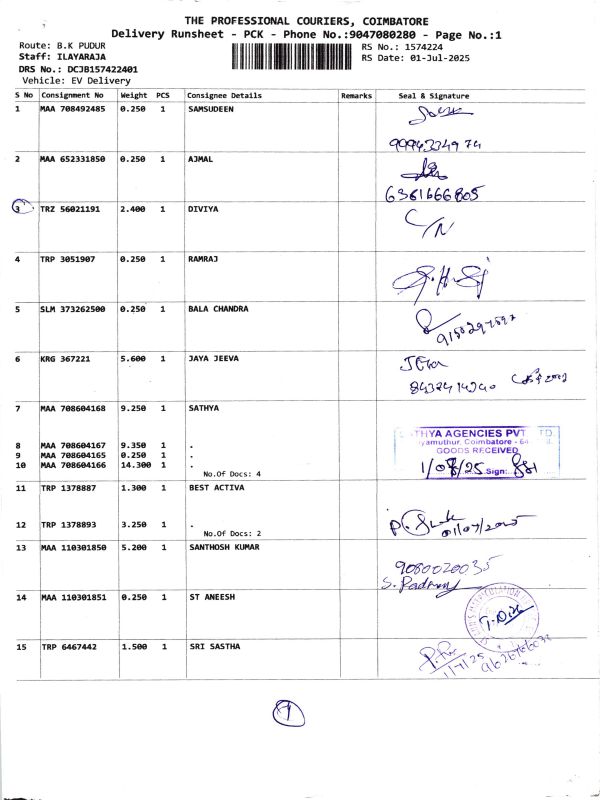 THE PROFESSIONAL COURIERS, COIMBATORE
Delivery Runsheet - PCK - Phone No.:9047080280 - Page No.:1
Route: B.K PUDUR
RS No.: 1574224
Staff: ILAYARAJA
RS Date: 01-Jul-2025
DRS No.: DCJB157422401
Vehicle: EV Delivery
S No Consignment No Weight PCS Consignee Details Remarks Seal & Signature
1 MAA 708492485 0.250 1 SAMSUDEEN
9994334974
2 MAA 652331850 0.250 1 AJMAL
6361666805
3 TRZ 56021191 2.400 1 DIVIYA
4 TRP 3051907 0.250 1 RAMRAJ
5 SLM 373262500 0.250 1 BALA CHANDRA
6 KRG 367221 5.600 1 JAYA JEEVA
7 MAA 708604168 9.250 1 SATHYA
8 MAA 708604167 9.350 1 .
9 MAA 708604165 0.250 1 .
10 MAA 708604166 14.300 1 .
No.Of Docs: 4
THYA AGENCIES PVT
Coimbatore - 64
GOODS RECEIVED
Sign:
11 TRP 1378887 1.300 1 BEST ACTIVA
12 TRP 1378893 3.250 1 .
01/07/2025
No.Of Docs: 2
13 MAA 110301850 5.200 1 SANTHOSH KUMAR
9080020035
14 MAA 110301851 0.250 1 ST ANEESH
15 TRP 6467442 1.500 1 SRI SASTHA
1/7/25